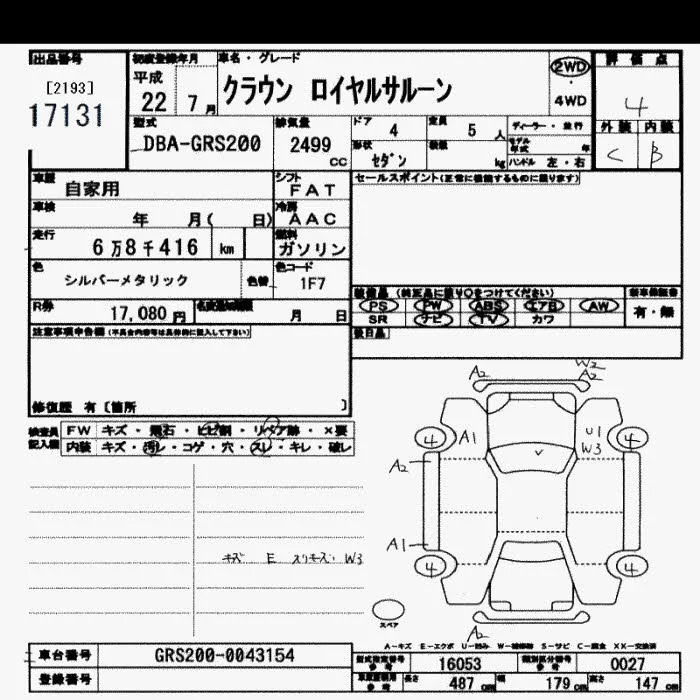 出品番号
[2193]
17131
初度登録年月
平成
22 7月
車名・グレード
クラウン ロイヤルサルーン
2WD
4WD
評価点
4
外装 内装
C B
型式
DBA-GRS200
排気量
2499
CC
ドア
4
定員
5 人
形状
セダン
積載
kg
ディーラー・並行
モデル年式 年
ハンドル 左・右
車歴
自家用
シフト
FAT
車検
年 月( 日)
冷房
AAC
走行
6万8千416 km
燃料
ガソリン
色
シルバーメタリック
色替
色コード
1F7
R券
17,080 円
名変通知期限
月 日
セールスポイント(正常に機能するものに限ります)
装備品(純正品に限り○をつけてください)
新車保証書
PS PW ABS エアB AW
有・無
SR ナビ TV カワ
後日品
注意事項申告欄(不具合内容等は具体的に記入して下さい)
修復歴 有〔箇所 〕
検査員
記入欄
FW キズ・飛石・ヒビ割・リペア跡・×要
内装 キズ・汚レ・コゲ・穴・スレ・キレ・破レ
キズ E スリキズ W3
A2
W2
A2
4 A1
U1
W3 4
A2
A1
4 4
スペア
A2
A-キズ E-エクボ U-凹み W-補修跡 S-サビ C-腐食 XX-交換済
車台番号
GRS200-0043154
登録番号
型式指定番号
参考
16053
類別区分番号
参考
0027
参考
長さ
487 cm
幅
179 cm
高さ
147 cm